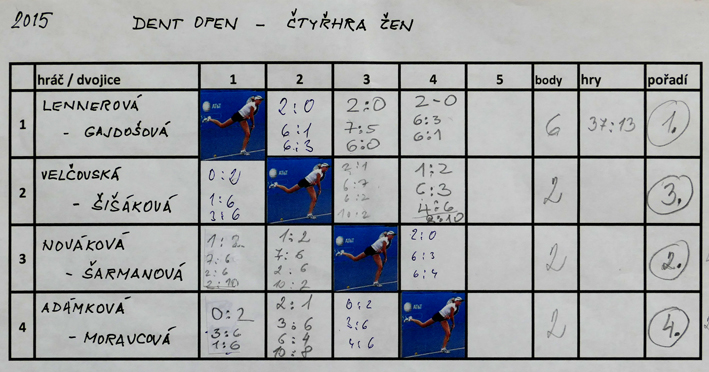 2015 DENT OPEN - ČTYŘHRA ŽEN
hráč / dvojice 1 2 3 4 5 body hry pořadí
1 LENNEROVÁ - GAJDOŠOVÁ
2:0 6:1 6:3
2:0 7:5 6:0
2-0 6:3 6:1
6 37:13 1.
2 VELČOVSKÁ - ŠIŠÁKOVÁ
0:2 1:6 3:6
2:1 6:7 6:2 10:2
1:2 6:3 4:6 8:10
2 3.
3 NOVÁKOVÁ - ŠARMANOVÁ
1:2 7:6 2:6 2:10
1:2 7:6 2:6 10:2
2:0 6:3 6:4
2 2.
4 ADÁMKOVÁ - MORAVCOVÁ
0:2 3:6 1:6
2:1 3:6 6:4 10:8
0:2 3:6 4:6
2 4.